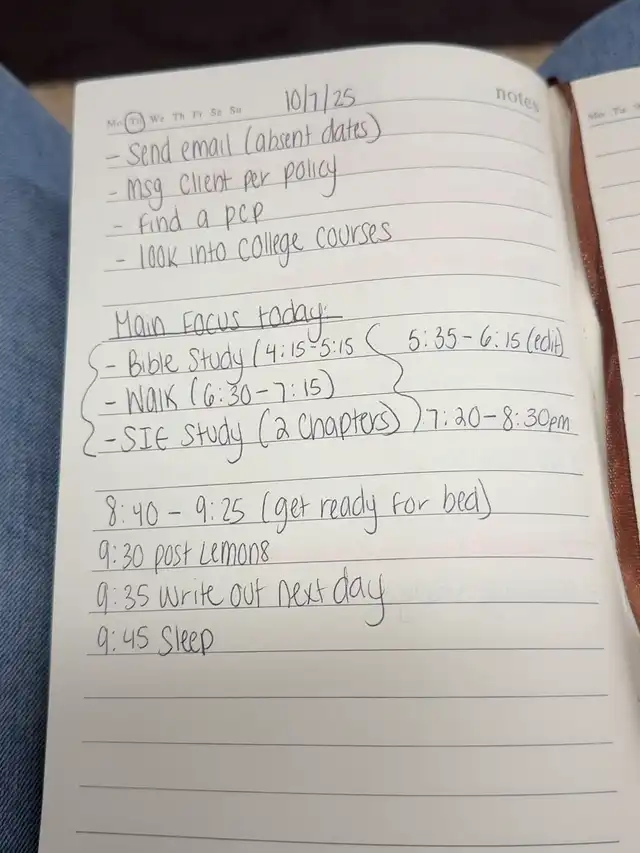 Mo Tu We Th Fr Sa Su 10/7/25 notes
- Send email (absent dates)
- Msg client per policy
- Find a pcp
- look into college courses
Main Focus today:
- Bible Study (4:15-5:15 5:35-6:15 (edit)
- Walk (6:30-7:15)
- SIE Study (2 Chapters) 7:20-8:30pm
8:40 - 9:25 (get ready for bed)
9:30 post Lemon8
9:35 Write out next day
9:45 Sleep
Mo Tu